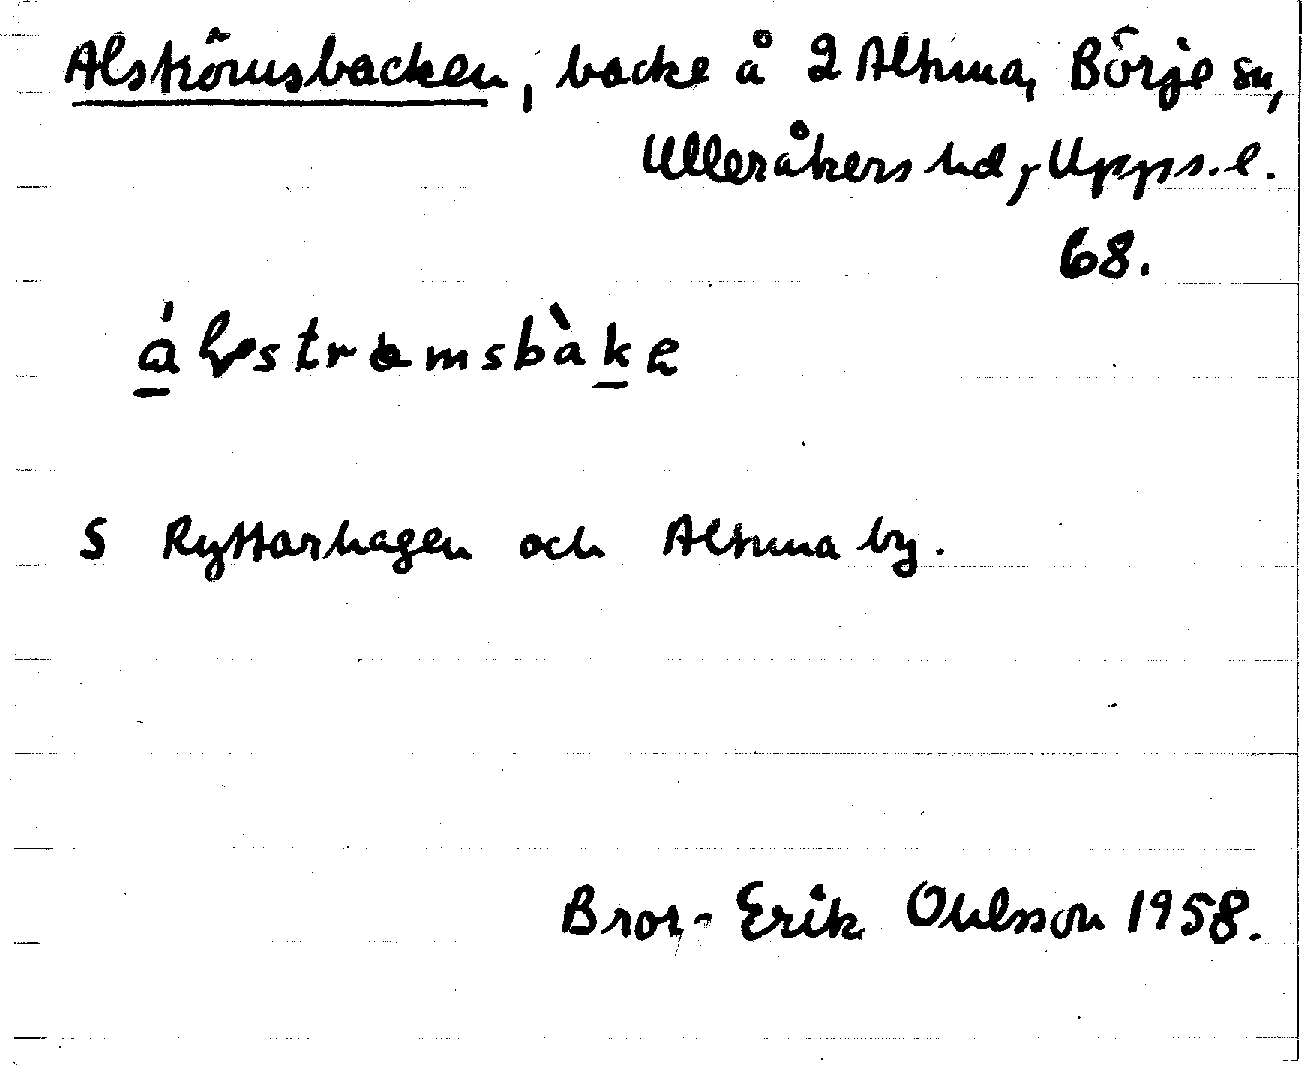 Alströmsbacken, backe å 2 Altuna, Börje sn,
Ulleråkers hd, Upps.l.
68.
S Ryttarhagen och Altuna by.
Bror-Erik Ohlsson 1958.